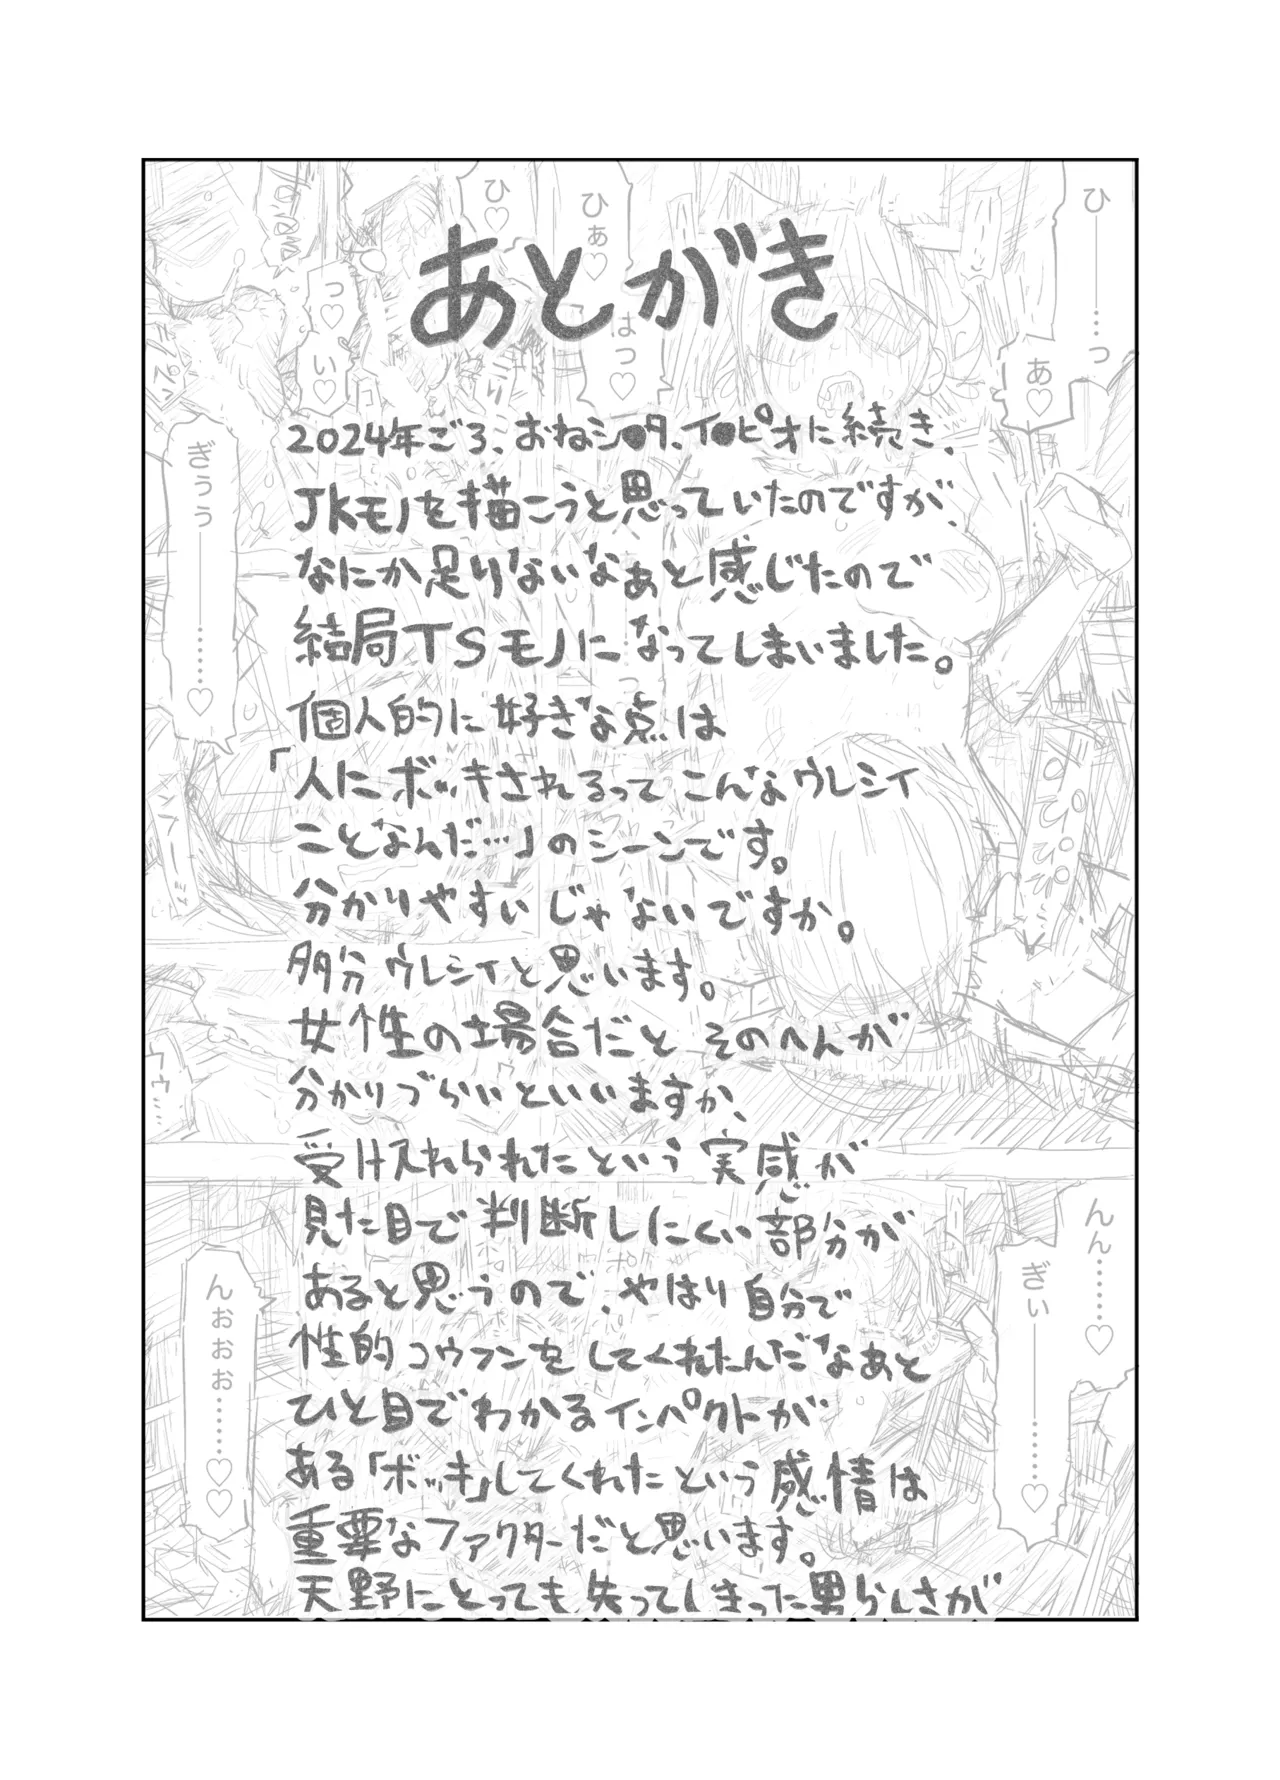 あとがき
2024年ごろ、おねシ●タ、イ●ピオに続き、
JKモノを描こうと思っていたのですが、
なにか足りないなぁと感じたので
結局TSモノになってしまいました。
個人的に好きな点は
「人にボッキされるってこんなウレシイ
ことなんだ…」のシーンです。
分かりやすいじゃないですか。
多分ウレシイと思います。
女性の場合だとそのへんが
分かりづらいといいますか、
受け入れられたという実感が
見た目で判断しにくい部分が
あると思うので、やはり自分で
性的コウフンをしてくれたんだなあと
ひと目でわかるインパクトが
ある「ボッキ」してくれたという感情は
重要なファクターだと思います。
天野にとっても失ってしまった男らしさが